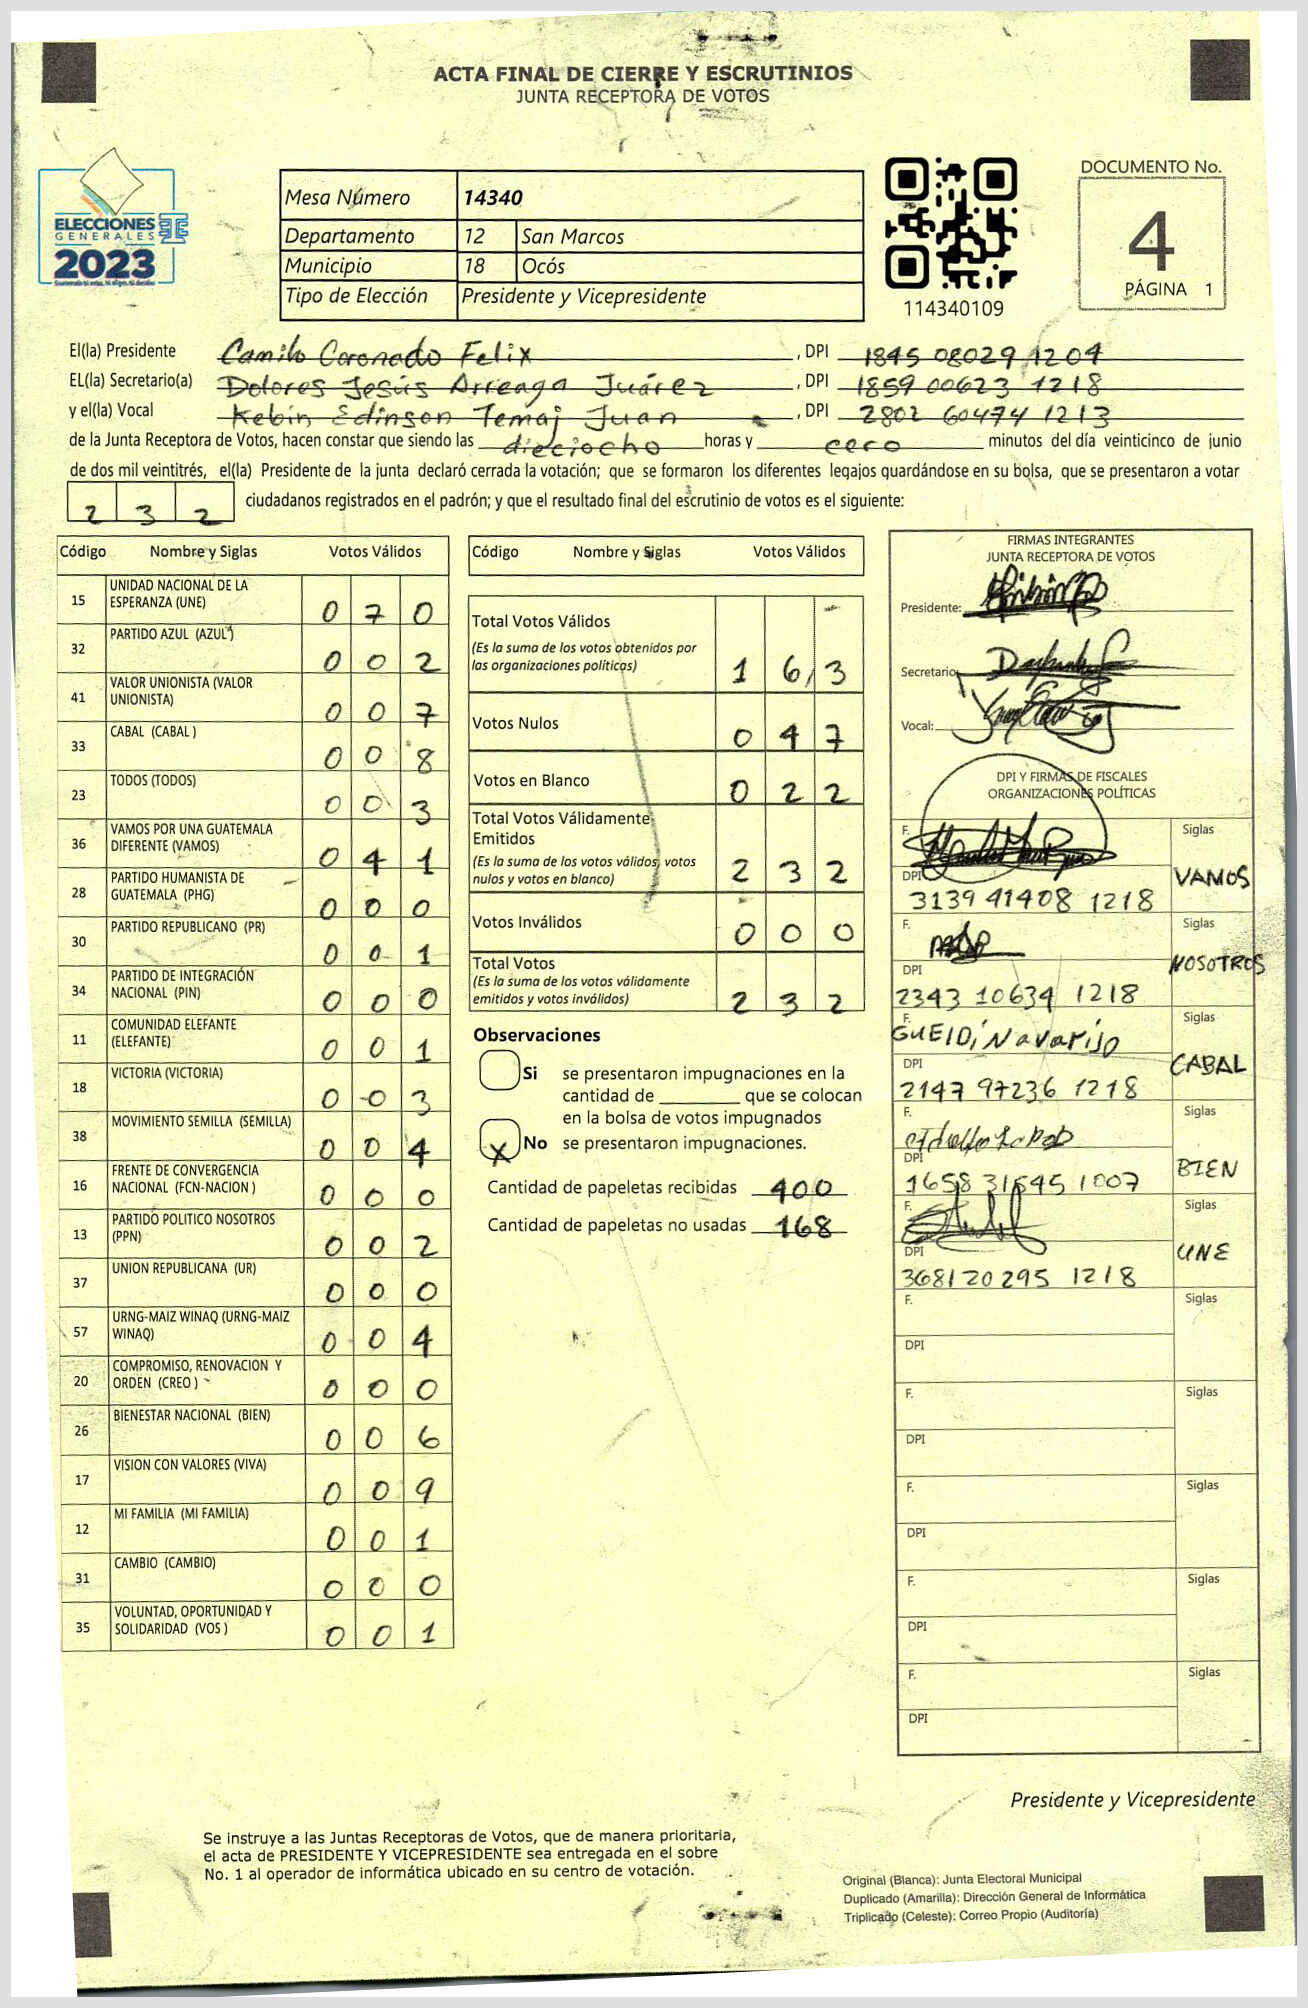 ACTA FINAL DE CIERRE Y ESCRUTINIOS
JUNTA RECEPTORA DE VOTOS
ELECCIONES
GENERALES
2023
Mesa Número 14340
Departamento 12 San Marcos
Municipio 18 Ocós
Tipo de Elección Presidente y Vicepresidente
114340109
DOCUMENTO No.
4
PÁGINA 1
El(la) Presidente Camilo Coronado Felix, DPI 1845 08029 1204
EL(la) Secretario(a) Dolores Jesús Arreaga Juárez, DPI 1859 00623 1218
y el(la) Vocal Kebin Edinson Temaj Juan, DPI 2802 60474 1213
de la Junta Receptora de Votos, hacen constar que siendo las dieciocho horas y cero minutos del día veinticinco de junio
de dos mil veintitrés, el(la) Presidente de la junta declaró cerrada la votación; que se formaron los diferentes legajos quardándose en su bolsa, que se presentaron a votar
232 ciudadanos registrados en el padrón; y que el resultado final del escrutinio de votos es el siguiente:
Código Nombre y Siglas Votos Válidos
15 UNIDAD NACIONAL DE LA ESPERANZA (UNE) 0 7 0
32 PARTIDO AZUL (AZUL) 0 0 2
41 VALOR UNIONISTA (VALOR UNIONISTA) 0 0 7
33 CABAL (CABAL ) 0 0 8
23 TODOS (TODOS) 0 0 3
36 VAMOS POR UNA GUATEMALA DIFERENTE (VAMOS) 0 4 1
28 PARTIDO HUMANISTA DE GUATEMALA (PHG) 0 0 0
30 PARTIDO REPUBLICANO (PR) 0 0 1
34 PARTIDO DE INTEGRACIÓN NACIONAL (PIN) 0 0 0
11 COMUNIDAD ELEFANTE (ELEFANTE) 0 0 1
18 VICTORIA (VICTORIA) 0 0 3
38 MOVIMIENTO SEMILLA (SEMILLA) 0 0 4
16 FRENTE DE CONVERGENCIA NACIONAL (FCN-NACION ) 0 0 0
13 PARTIDO POLITICO NOSOTROS (PPN) 0 0 2
37 UNION REPUBLICANA (UR) 0 0 0
57 URNG-MAIZ WINAQ (URNG-MAIZ WINAQ) 0 0 4
20 COMPROMISO, RENOVACION Y ORDEN (CREO ) 0 0 0
26 BIENESTAR NACIONAL (BIEN) 0 0 6
17 VISION CON VALORES (VIVA) 0 0 9
12 MI FAMILIA (MI FAMILIA) 0 0 1
31 CAMBIO (CAMBIO) 0 0 0
35 VOLUNTAD, OPORTUNIDAD Y SOLIDARIDAD (VOS ) 0 0 1
Código Nombre y Siglas Votos Válidos
Total Votos Válidos 1 6 3
(Es la suma de los votos obtenidos por
las organizaciones políticas)
Votos Nulos 0 4 7
Votos en Blanco 0 2 2
Total Votos Válidamente
Emitidos 2 3 2
(Es la suma de los votos válidos, votos
nulos y votos en blanco)
Votos Inválidos 0 0 0
Total Votos 2 3 2
(Es la suma de los votos válidamente
emitidos y votos inválidos)
Observaciones
Si se presentaron impugnaciones en la
cantidad de ________ que se colocan
en la bolsa de votos impugnados
X No se presentaron impugnaciones.
Cantidad de papeletas recibidas 400
Cantidad de papeletas no usadas 168
FIRMAS INTEGRANTES
JUNTA RECEPTORA DE VOTOS
Presidente:
Secretario:
Vocal:
DPI Y FIRMAS DE FISCALES
ORGANIZACIONES POLÍTICAS
F. Siglas VAMOS
DPI 3139 41408 1218
F. Siglas NOSOTROS
DPI 2343 10634 1218
F. Siglas CABAL
DPI 2147 97236 1218
F. Siglas BIEN
DPI 1658 31545 1007
F. Siglas UNE
DPI 368120295 1218
F. Siglas
DPI
F. Siglas
DPI
F. Siglas
DPI
F. Siglas
DPI
F. Siglas
DPI
Presidente y Vicepresidente
Se instruye a las Juntas Receptoras de Votos, que de manera prioritaria,
el acta de PRESIDENTE Y VICEPRESIDENTE sea entregada en el sobre
No. 1 al operador de informática ubicado en su centro de votación.
Original (Blanca): Junta Electoral Municipal
Duplicado (Amarilla): Dirección General de Informática
Triplicado (Celeste): Correo Propio (Auditoría)